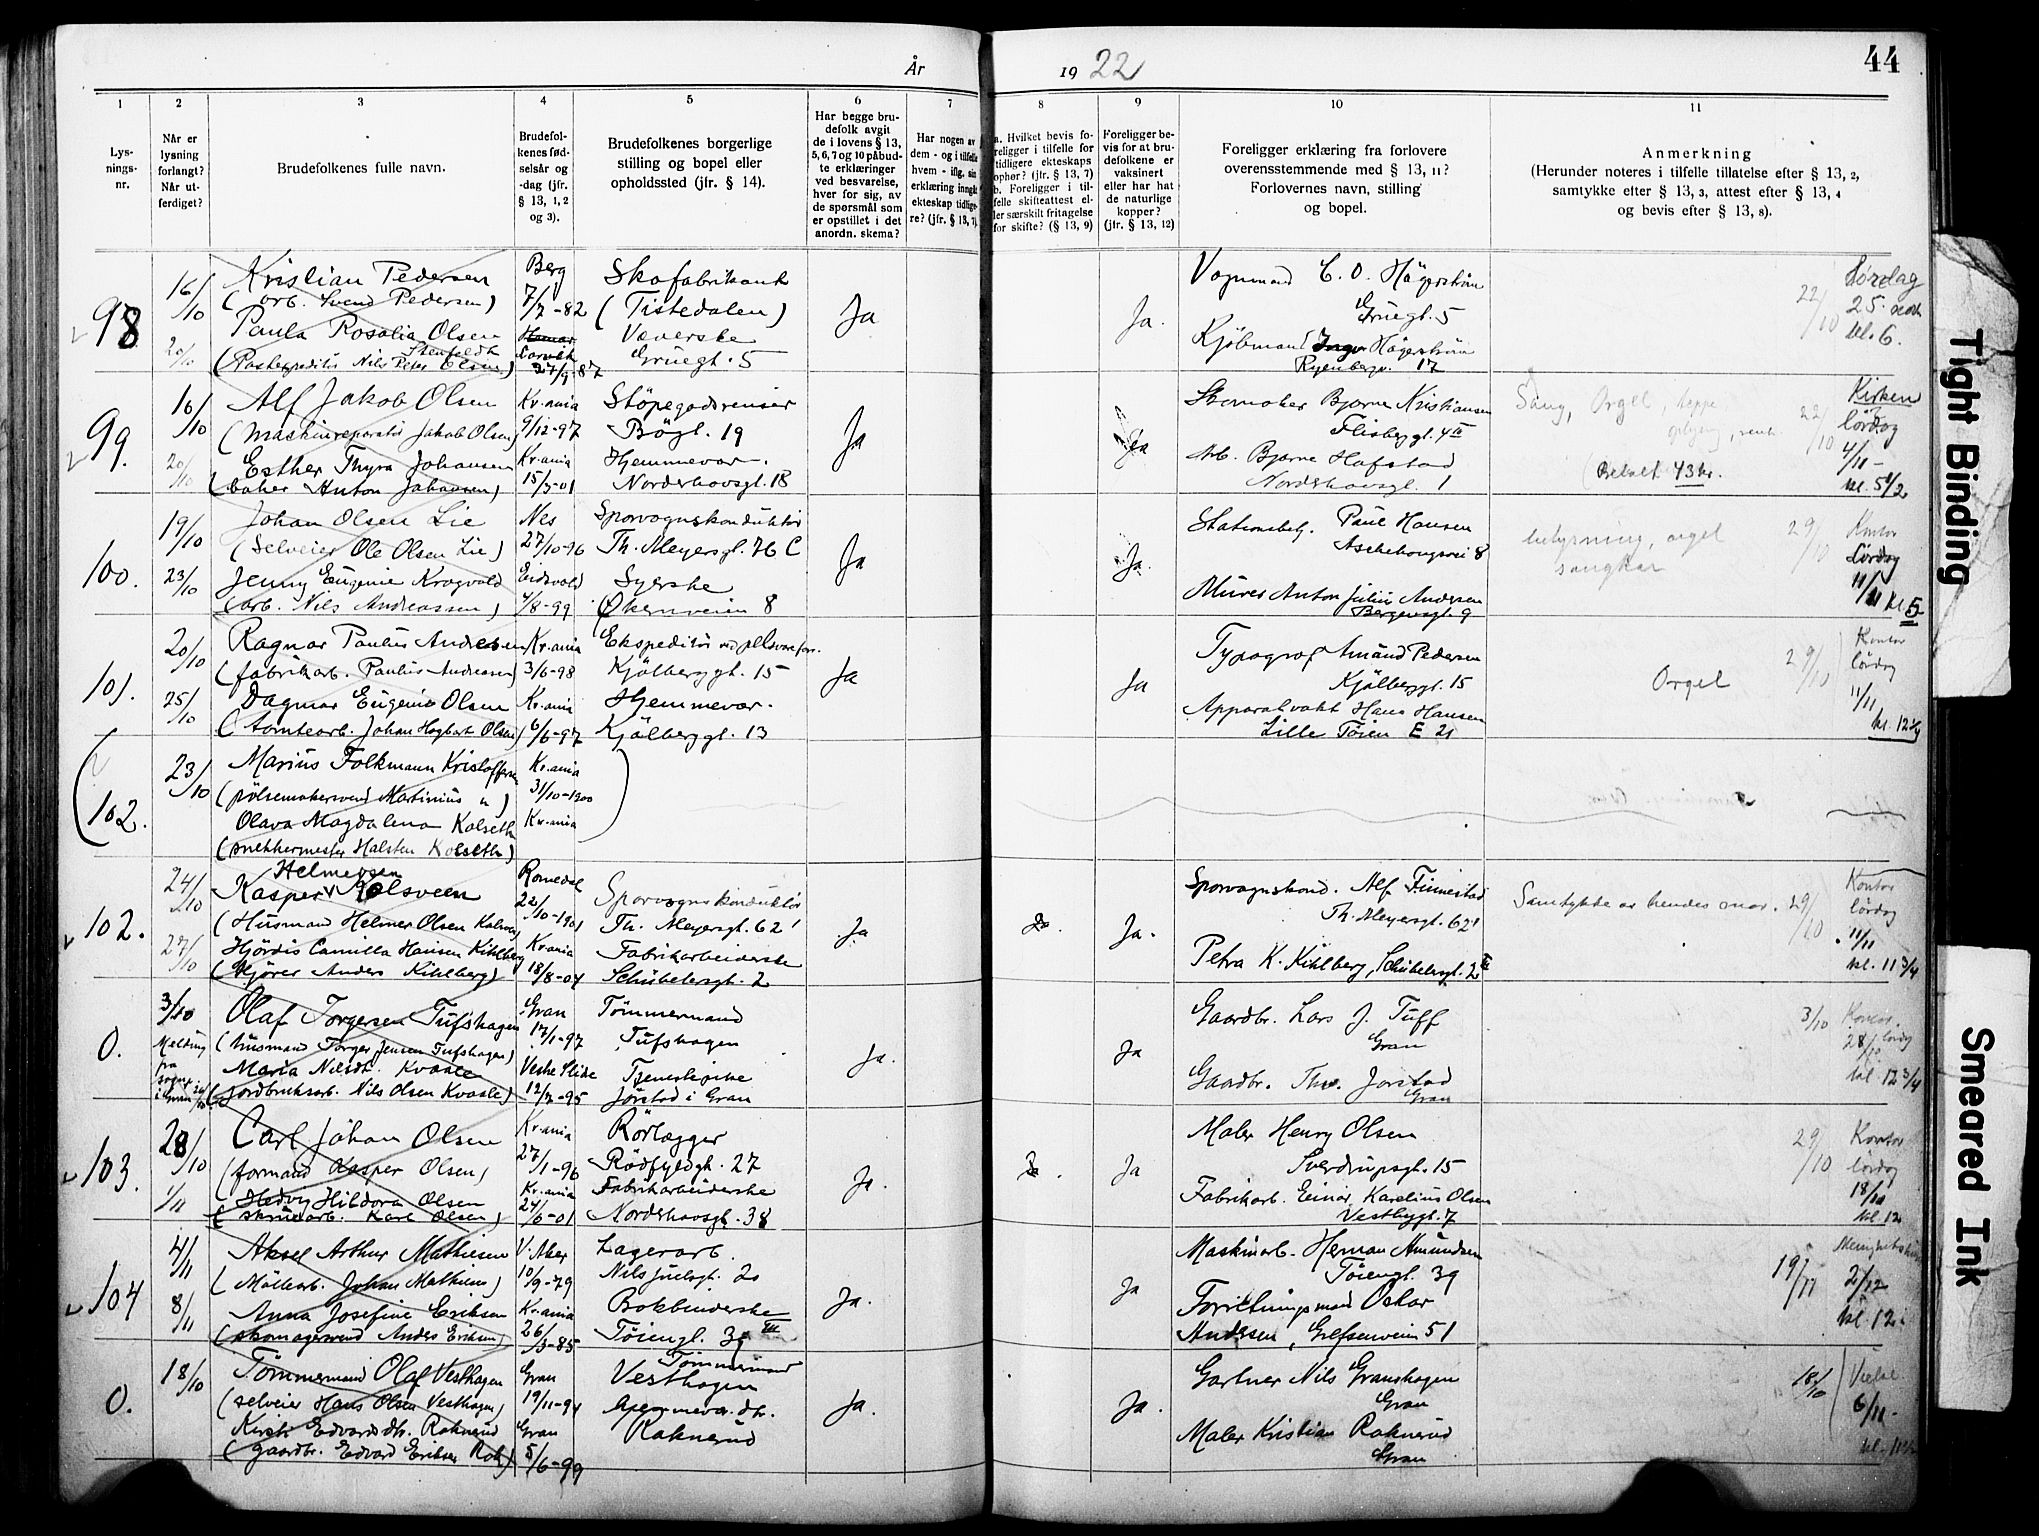 År 1922
44
1
2
3
4
5
6
7
8
9
10
11
Lys-
nings-
nr.
Når er
lysning
forlangt?
Når ut-
ferdiget?
Brudefolkenes fulle navn.
Brudefol-
kenes fød-
selsår og
-dag (jfr.
§ 13, 1, 2
og 3).
Brudefolkenes borgerlige
stilling og bopel eller
opholdssted (jfr. § 14).
Har begge bru-
defolk avgit
de i lovens § 13,
5, 6, 7 og 10 påbud-
te erklæringer
ved besvarelse,
hver for sig, av
de spørsmål som
er opstillet i det
anordn. skema?
Har nogen av
dem - og i tilfelle
hvem - iflg. sin
erklæring inngåt
ekteskap tidlige-
re? (jfr. § 13, 7)
a. Hvilket bevis fo-
religger i tilfelle for
tidligere ekteskaps
ophør? (jfr. § 13, 7)
b. Foreligger i til-
felle skifteattest el-
ler særskilt fritagelse
for skifte? (§ 13, 9)
Foreligger be-
vis for at bru-
defolkene er
vaksinert
eller har hat
de naturlige
kopper?
(jfr. § 13, 12)
Foreligger erklæring fra forlovere
overensstemmende med § 13, 11?
Forlovernes navn, stilling
og bopel.
Anmerkning
(Herunder noteres i tilfelle tillatelse efter § 13, 2,
samtykke efter § 13, 3, attest efter § 13, 4
og bevis efter § 13, 8).
98
16/10
20/10
Kristian Pedersen
(arb. Svend Pedersen)
Paula Rosalia Olsen
(Postexpeditør Nils Peter Olsen)
Berg
7/7-82
Larvik
27/9-87
Skofabrikant
(Tistedalen)
Væverske
Gruegt. 5
Ja
Ja.
Vognmand C. O. Hägerström
Gruegt. 5
Kjøbmand Hägerström
Ryenbergv. 17
22/10
Lørdag
25.
kl. 6.
99.
16/10
20/10
Alf Jakob Olsen
(Maskinreparatør Jakob Olsen)
Esther Thyra Johansen
(baker Anton Johansen)
Kr.ania
9/12-97
Kr.ania
15/3-01
Støpegodsrenser
Bøgt. 19
Hjemmevær.
Nordshovsgt. 18
Ja
Ja
Skomaker Bjarne Kristiansen
Flisbergt. 4 III
Arb. Bjarne Hafstad
Nordshovsgt. 1
Sang, Orgel, teppe
(Betalt 43 kr.
22/10
Kirken
lørdag
4/11-
kl. 5 1/2
100.
19/10
23/10
Johan Olsen Lie
(Selveier Ole Olsen Lie)
Jenny Eugenie Krogvold
(arb. Nils Andreassen)
Nes
27/10-96
Eidsvold
4/8-99
Sporvognskonduktør
Th. Meyersgt. 76 C
Syerske
Økernveien 8
Ja
Ja.
Stationsbetj. Paul Hansen
Aschehougsvei 8
Murer Anton Julius Andersen
Bergensgt. 9
belysning, orgel
sangkor
29/10
Kontor
Lørdag
11/11 kl. 5
101.
20/10
25/10
Ragnar Paulus Andresen
(fabrikarb. Paulus Andresen)
Dagmar Eugenie Olsen
(tomtearb. Johan Hagbart Olsen)
Kr.ania
3/6-98
Kr.ania
6/6-97
Ekspeditør
Kjølberggt. 15
Hjemmevær.
Kjølberggt. 13
Ja
Ja
Typograf Amund Pedersen
Kjølberggt. 15
Apparatvakt Hans Hansen
Lille Tøien E 21
Orgel
29/10
Kontor
lørdag
11/11
kl. 12 1/4
(102.
23/10
Marius Folkmann Kristoffersen
(pølsemakersvend Martinius ")
Olava Magdalena Kolseth
(snekkermester Halsten Kolseth)
Kr.ania
31/10-1900
Kr.ania
102.
24/10
27/10
Helmersen
Kasper Kolsveen
(Husmand Helmer Olsen Kolsveen
Hjørdis Camilla Hansen Kihlberg
(Kjører Anders Kihlberg)
Romedal
22/10-1901
Kr.ania
18/8-04
Sporvognskonduktør
Th. Meyersgt. 62 I
Fabrikarbeiderske
Schübelersgt. 2
Ja
Ja.
Ja.
Sporvognskond. Alf Finnestad
Th. Meyersgt. 62 I
Petra K. Kihlberg, Schübelersgt. 2
Samtykke av hendes mor.
29/10
Kontor
lørdag
11/11
kl. 11 3/4
0.
3/10
Melding
fra
Olaf Torgersen Tufshagen
(husmand Torger Jensen Tufshagen)
Maria Nilsdt. Kvaale
(jordbruksarb. Nils Olsen Kvaale)
Gran
17/1-97
Vestre Slidre
12/7-95
Tømmermand
Tufshagen
Tjenestepike
Jorstad i Gran
Ja.
Ja
Gaardbr. Lars J. Tuff
Gran
Gaardbr. Thv. Jorstad
Gran
3/10
Kontor
lørdag
28/10
kl. 12 3/4
103.
28/10
1/11
Carl Johan Olsen
(formand Kasper Olsen)
Hedvig Hildora Olsen
(skruearb. Karl Olsen)
Kr.ania
27/1-96
Kr.ania
24/6-01
Rørlægger
Rødfyldgt. 27
Fabrikarbeiderske
Nordshovsgt. 38
Ja.
Ja.
Ja
Maler Henry Olsen
Sverdrupsgt. 15
Fabrikarb. Einar Karelius Olsen
Vestbygt. 7
29/10
Kontor
lørdag
kl. 12
104
4/11
8/11
Aksel Arthur Mathiesen
(Møllearb. Johan Mathiesen)
Anna Josefine Eriksen
(skomagersvend Anders Eriksen)
V. Aker
10/9-79
Kr.ania
26/3-85
Lagerarb.
Nils Juelsgt. 20
Bokbinderske
Tøiengt. 39 III
Ja.
Ja
Maskinarb. Herman Amundsen
Tøiengt. 39
Forretningsmand Oskar
Andersen, Grefsenveien 51
19/11
2/12
kl. 12
0.
18/10
Tømmermand Olaf Vesthagen
(selveier Hans Olsen Vesthagen)
Kirsti Edvardsdt. Raknerud
(gaardbr. Edvard Eriksen Rak.)
Gran
19/11-94
Gran
5/6-99
Tømmermand
Vesthagen
Hjemmevær. dt.
Raknerud
Ja.
Ja.
Gartner Nils Granshagen
Gran
Maler Kristian Raknerud
Gran
18/10
Vielse
6/11-
Tight Binding
Smeared Ink